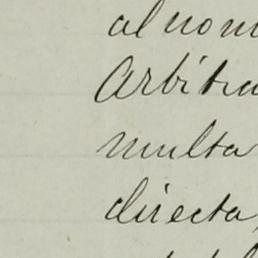 al nom
Arbitra
multa
directa,